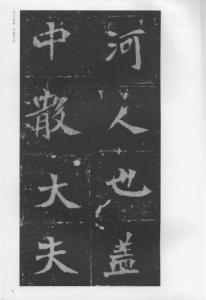 河人也盖
中散大夫